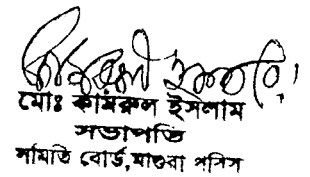 মোঃ কামরুল ইসলাম
সভাপতি
সমিতি বোর্ড, মাগুরা পবিস